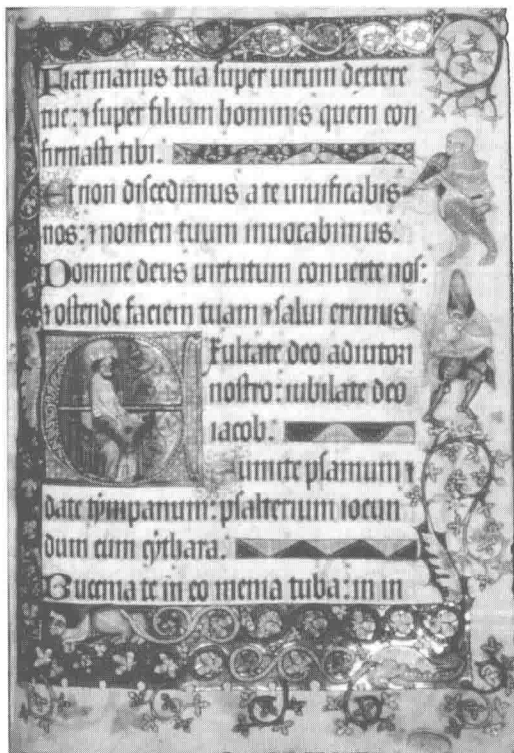 Fiat manus tua super uirum dextere
tue: ⁊ super filium hominis quem con
firmasti tibi.
Et non discedimus a te uiuificabis
nos: ⁊ nomen tuum inuocabimus.
Domine deus uirtutum conuerte nos:
⁊ ostende faciem tuam ⁊ salui erimus.
Exultate deo adiutori
nostro: iubilate deo
iacob.
Sumite psamum ⁊
date tympanum: psalterium iocun
dum cum cythara.
Bucinate in eo menia tuba: in in